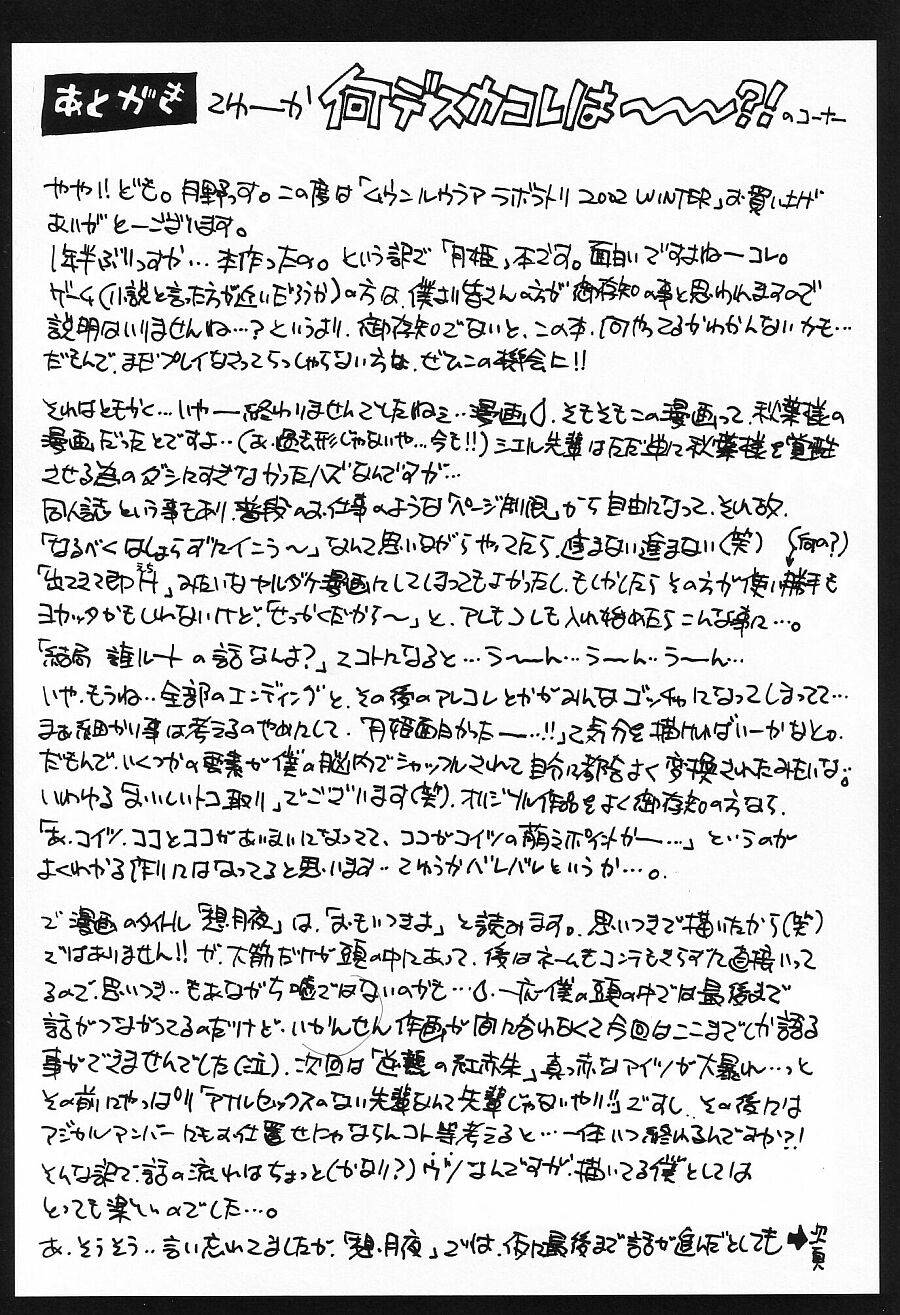 あとがき てゆーか 何デスカコレは〜〜〜?!のコーナー
やや!!ども。月野っす。この度は「ムウンルウラア ラボラトリ 2002 WINTER」お買い上げ
ありがとーございます。
1年半ぶりっすか…本作ったの。という訳で「月姫」本です。面白いですよねーコレ。
ゲーム(小説と言った方が近いだろうか)の方は、僕より皆さんの方が御存知の事と思われますので
説明はいりませんね…?というより、御存知でないと、この本、何やってるかわかんないかも…
だもんで、まだプレイなさってらっしゃらない方は、ぜひこの機会に!!
それはともかく…いやー終わりませんでしたねェ…漫画。そもそもこの漫画って、秋葉様の
漫画だったとですよ…(あ、過去形じゃないや…今も!!)シエル先輩はただ単に秋葉様を覚醒
させる為のダシにすぎなかったハズなんですが…
同人誌という事もあり、普段のお仕事のような「ページ制限」から自由になって、それ故、
「なるべくはしょらずにイこう〜」なんて思いながらやってたら、進まない進まない(笑) (何の?)
「出てきて即H」みたいなヤルダケ漫画にしてしまってもよかったし、もしかしたらその方が使い勝手も
ヨカッタかもしれないけど、「せっかくだから〜」と、アレもコレも入れ始めたらこんな事に…。
「結局 誰ルートの話なんよ?」てコトになると…う〜〜ん…う〜ん…う〜ん…
いや、もうね…全部のエンディングと、その後のアレコレとかがみんなゴッチャになってしまってて…
まぁ細かい事は考えるのやめにして、「月姫面白かったー…!!」て気分を描ければいーかなと。
だもんで、いくつかの要素が僕の脳内でシャッフルされて自分に都合よく変換されたみたいな。
いわゆる「おいしいトコ取り」でございます(笑)。オリジナル作品をよく御存知の方なら、
「あ、コイツ、ココとココがあいまいになってて、ココがコイツの萌えポイントかー…」というのが
よくわかる作りにはなってると思います…てゆうかバレバレというか…。
で 漫画のタイトル「想月夜」は、「おもいつきよ」と読みます。思いつきで描いたから(笑)
ではありません!!が、大筋だけが頭の中にあって、後はネームもコンテもきらずに直接いって
るので、思いつき…もあながち嘘ではないのかも…。一応僕の頭の中では最後まで
話がつながってるのだけど、いかんせん作画が間に合わなくて今回はここまでしか語る
事ができませんでした(泣)。次回は「逆襲の紅赤朱」真っ赤なアイツが大暴れ…っと
その前にやっぱり「アナルセックスのない先輩なんて先輩じゃないやい!!」ですし、その後には
マジカルアンバーにもお仕置せにゃならんコト等考えると…一体いつ終れるんですか?!
そんな訳で、話の流れはちょっと(かなり?)ヴツなんですが、描いてる僕としては
とっても楽しいのでした…。
あ、そうそう…言い忘れてましたが、「想月夜」では、仮に最後まで話が進んだとしても➡次頁